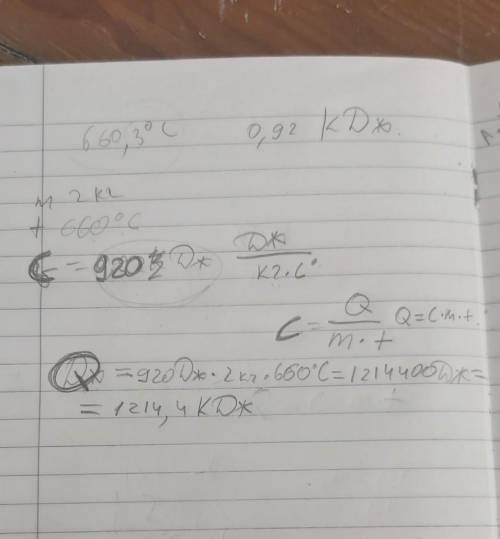 660,3°C 0,92 кДж.
m 2 кг
t 660°C
C = 920 Дж Дж/кг·C°
C = Q/m·t Q=C·m·t.
Q = 920Дж·2кг·660°C=1214400Дж=
= 1214,4 КДж